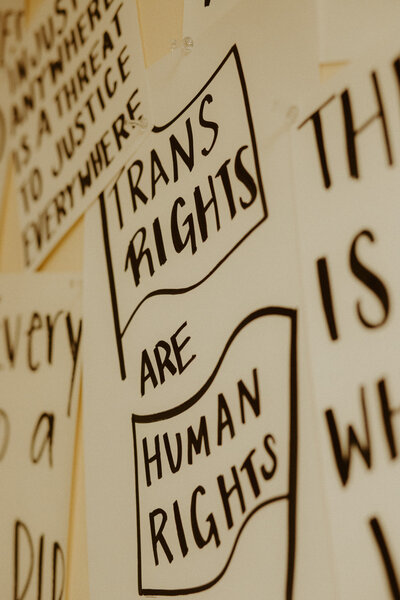 INJUSTICE
ANYWHERE
IS A THREAT
TO JUSTICE
EVERYWHERE
TRANS
RIGHTS
ARE
HUMAN
RIGHTS
Every
a
IS